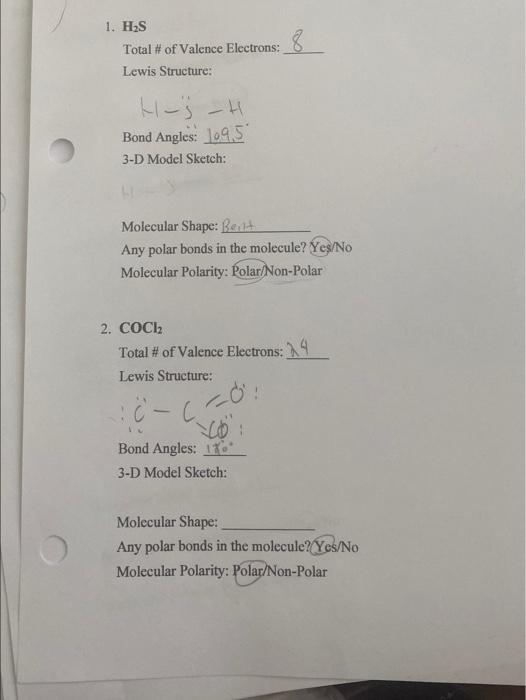 1. H₂S
Total # of Valence Electrons: 8
Lewis Structure:
H-S-H
Bond Angles: 109.5°
3-D Model Sketch:
H - S
Molecular Shape: Bent
Any polar bonds in the molecule? Yes/No
Molecular Polarity: Polar/Non-Polar
2. COCl₂
Total # of Valence Electrons: 24
Lewis Structure:
Bond Angles:
3-D Model Sketch:
Molecular Shape:
Any polar bonds in the molecule? Yes/No
Molecular Polarity: Polar/Non-Polar